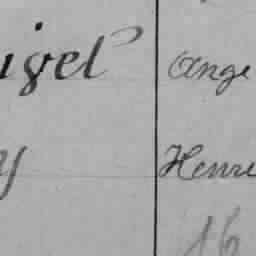 igel Ange
y Henri
16